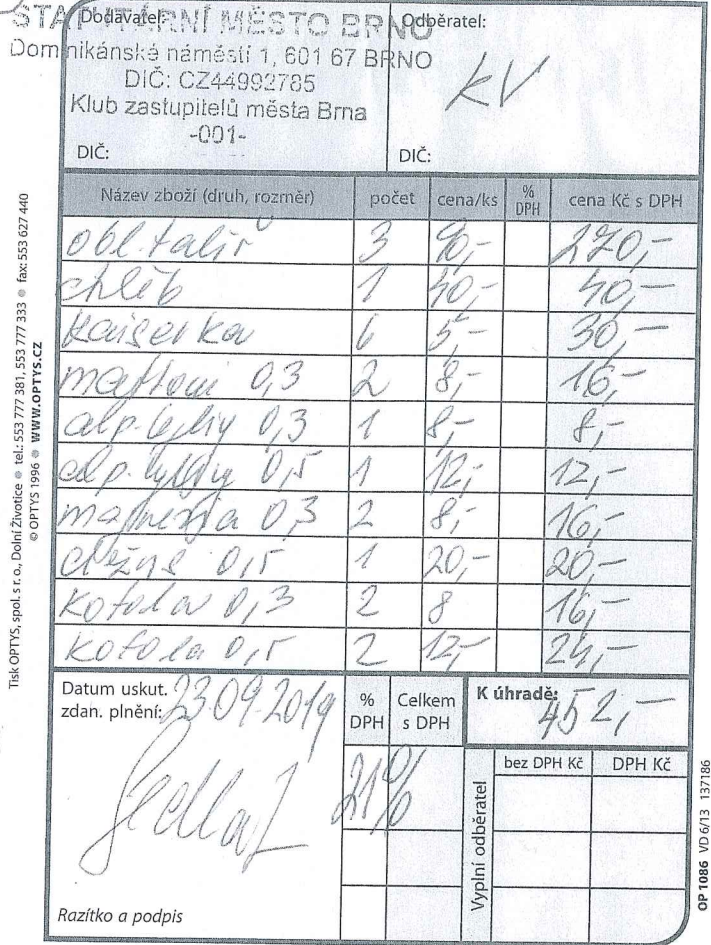 STATUTÁRNÍ MĚSTO BRNO
Dodavatel:
Odběratel:
Dominikánské náměstí 1, 601 67 BRNO
DIČ: CZ44992785
Klub zastupitelů města Brna
-001-
KV
DIČ:
DIČ:
Název zboží (druh, rozměr) počet cena/ks % DPH cena Kč s DPH
obl. talíř 3 90,- 270,-
chléb 1 40,- 40,-
kaiserka 6 5,- 30,-
mattoni 0,3 2 8,- 16,-
0,3 1 8,- 8,-
0,5 1 12,- 12,-
magnesia 0,3 2 8,- 16,-
0,5 1 20,- 20,-
kofola 0,3 2 8 16,-
kofola 0,5 2 12,- 24,-
Datum uskut. zdan. plnění: 23.09.2019
% DPH
Celkem s DPH
K úhradě: 452,-
21%
Vyplní odběratel
bez DPH Kč
DPH Kč
Razítko a podpis
Tisk OPTYS, spol. s r. o., Dolní Životice ● tel.: 553 777 381, 553 777 333 ● fax: 553 627 440
© OPTYS 1996 ● WWW.OPTYS.CZ
OP 1086 VD 6/13 137186